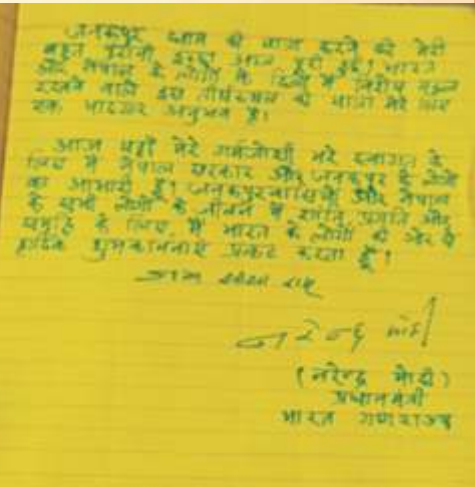 जनकपुर धाम की यात्रा करने की मेरी
बहुत पुरानी इच्छा आज पूरी हुई। भारत
और नेपाल के लोगों के दिलों में विशेष महत्व
रखने वाले इस तीर्थस्थल की यात्रा मेरे लिए
एक यादगार अनुभव है।
आज यहाँ मेरे गर्मजोशी भरे स्वागत के
लिए मैं नेपाल सरकार और जनकपुर के लोगों
का आभारी हूँ। जनकपुरवासियों और नेपाल
के सभी लोगों के जीवन में शांति, प्रगति और
समृद्धि के लिए, मैं भारत के लोगों की ओर से
हार्दिक शुभकामनाएं प्रकट करता हूँ।
नरेन्द्र मोदी
(नरेन्द्र मोदी)
प्रधानमंत्री
भारत गणराज्य